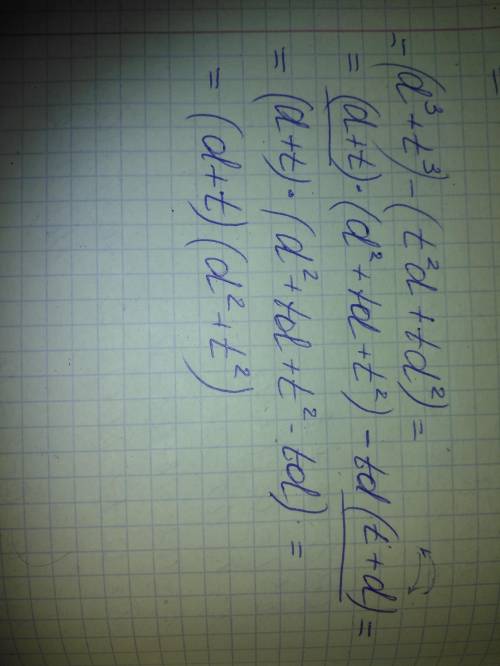 = (d³ + t³) - (t²d + td²) =
= (d+t) · (d² + td + t²) - td (t + d) =
= (d+t) · (d² + td + t² - td) =
= (d+t) (d² + t²)